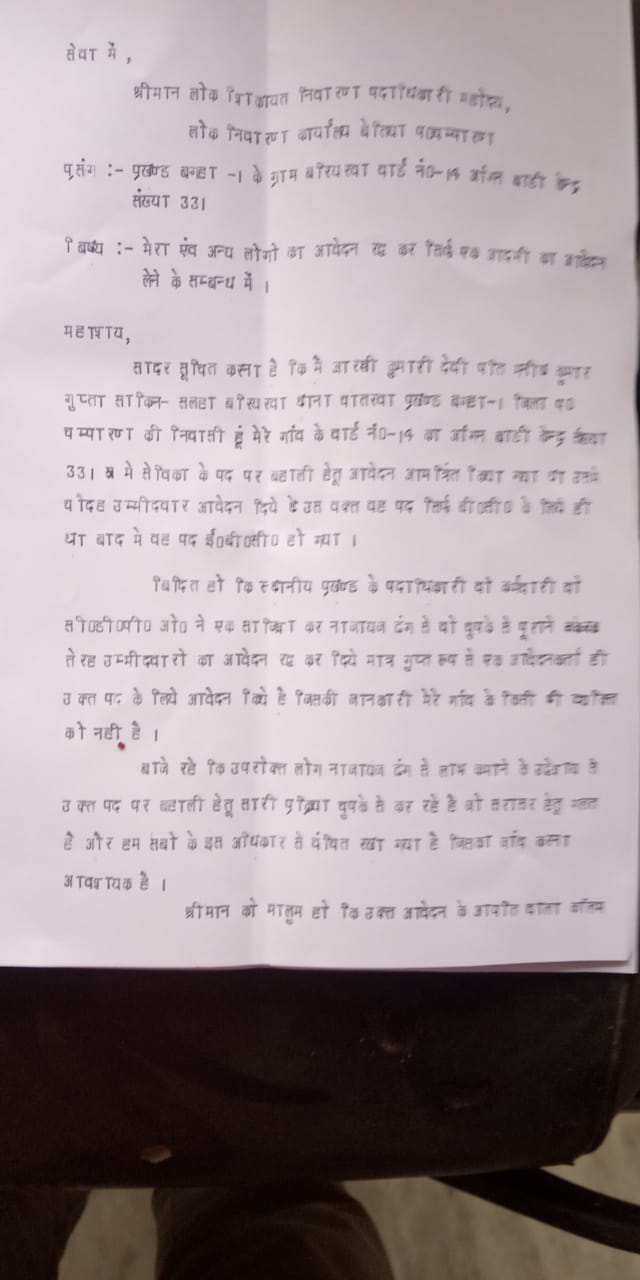 सेवा में ,
श्रीमान लोक शिकायत निवारण पदाधिकारी महोदय,
लोक निवारण कार्यालय बेतिया प०चम्पारण
प्रसंग :- प्रखण्ड बगहा -1 के ग्राम बरियरवा वार्ड नं0-14 आँगन बाडी केन्द्र
संख्या 331
विषय :- मेरा एंव अन्य लोगो का आवेदन रद्द कर सिर्फ एक आदमी का आवेदन
लेने के सम्बन्ध में ।
महाशय,
सादर सूचित करना है कि मै आरती कुमारी देवी पति कुमार
गुप्ता साकिन- सलहा बरियरवा थाना प्रखण्ड बगहा-1 जिला प0
चम्पारण की निवासी हूं मेरे गाँव के वार्ड नं0-14 का आँगन बाडी केन्द्र संख्या
331 मे सेविका के पद पर बहाली हेतू आवेदन आमंत्रित किया गया था उसमे
चौदह उम्मीदवार आवेदन दिये थे उस वक्त वह पद सिर्फ बी0सी0 के लिये ही
था बाद मे वह पद ई0बी0सी0 हो गया ।
विदित हो कि स्थानीय प्रखण्ड के पदाधिकारी वो कर्मचारी वो
सी0डी0पी0 ओ0 ने एक साजिश कर नाजायज ढंग से वो चुपके से पूराने
तेरह उम्मीदवारो का आवेदन रद्द कर दिये मात्र गुप्त रूप से एक आवेदनकर्ता ही
उक्त पद के लिये आवेदन किये है जिसकी जानकारी मेरे गाँव के किसी भी व्यक्ति
को नही है ।
बाजे रहे कि उपरोक्त लोग नाजायज ढंग से लाभ कमाने के उदेश्य से
उक्त पद पर बहाली हेतू सारी प्रक्रिया चुपके से कर रहे है जो सरासर हेतू गलत
है और हम सबो के इस अधिकार से वंचित रखा गया है जिसका जाँच करना
आवश्यक है ।
श्रीमान को मालुम हो कि उक्त आवेदन के आपति वाला कॉलम